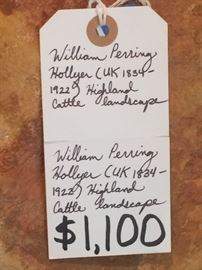 William Perring
Hollyer (UK 1834-
1922) Highland
Cattle landscape
William Perring
Hollyer (UK 1834-
1922) Highland
Cattle landscape
$1,100